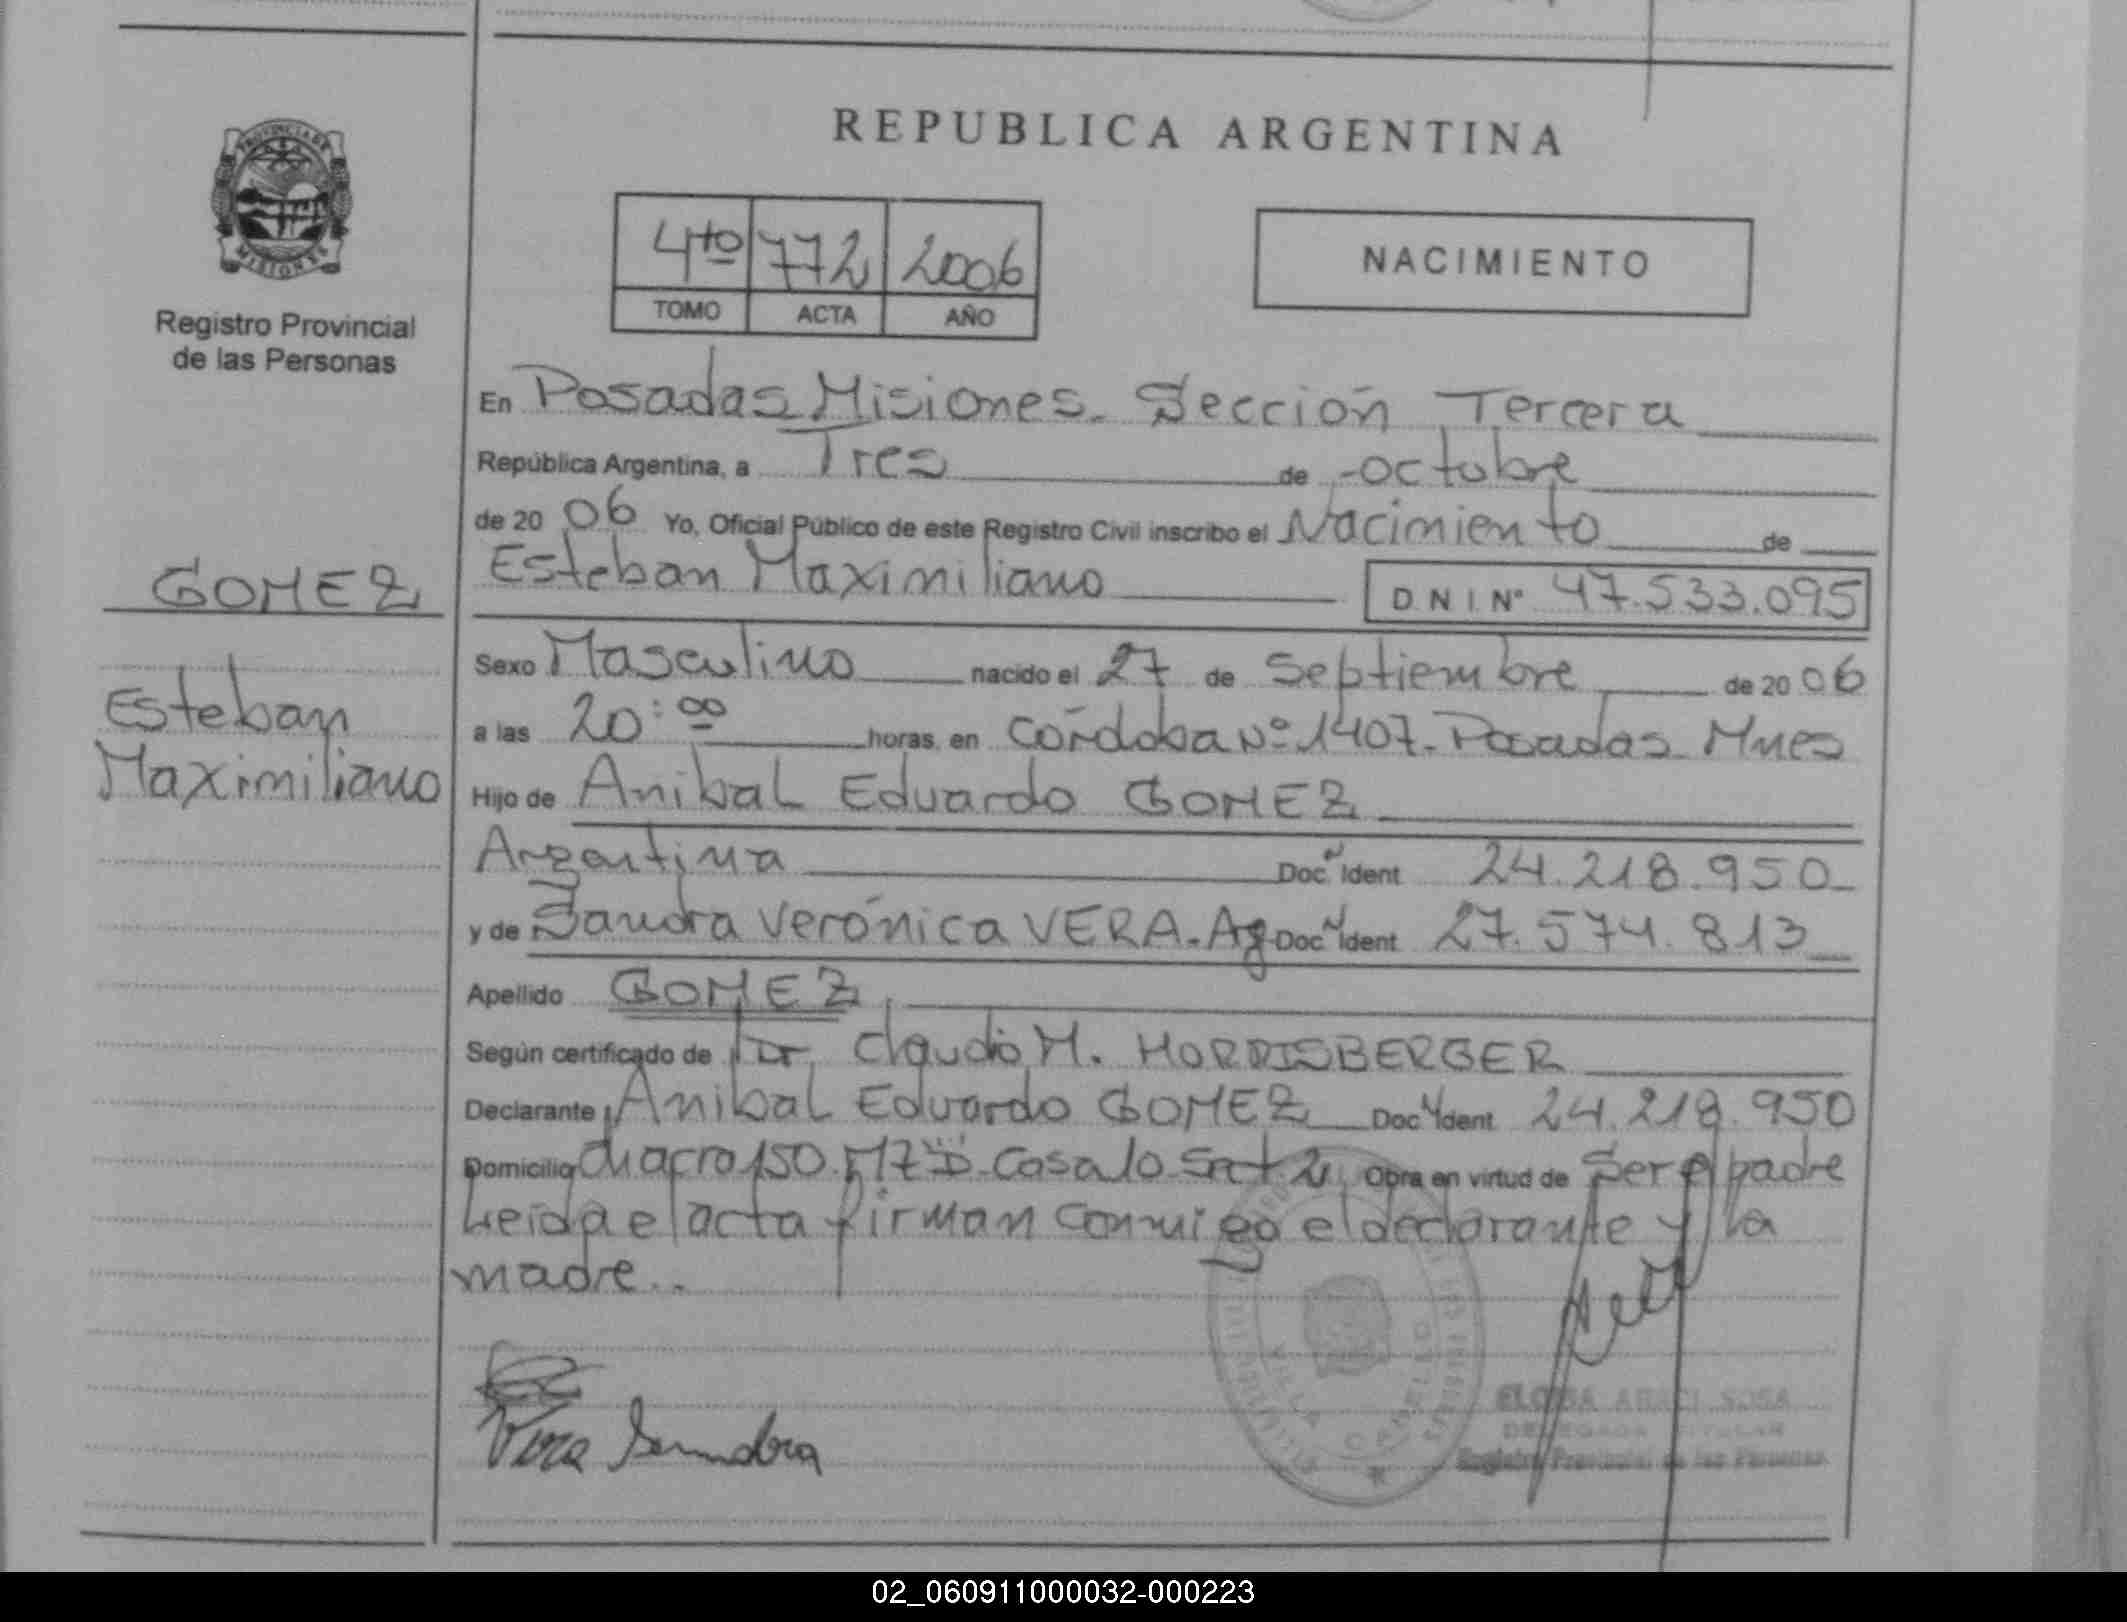 PROVINCIA DE
MISIONES
Registro Provincial
de las Personas
GOMEZ
Esteban
Maximiliano
REPUBLICA ARGENTINA
4to 772 2006
TOMO ACTA AÑO
NACIMIENTO
En Posadas Misiones. Sección Tercera
República Argentina, a Tres de octubre
de 20 06 Yo, Oficial Público de este Registro Civil inscribo el Nacimiento de
Esteban Maximiliano D N I Nº 47.533.095
Sexo Masculino nacido el 27 de Septiembre de 20 06
a las 20:00 horas, en Córdoba Nº 1407. Posadas Mnes
Hijo de Anibal Eduardo GOMEZ
Argentina Doc. Ident 24.218.950
y de Sandra Verónica VERA. Ag Doc Ident 27.574.813
Apellido GOMEZ
Según certificado de Dr Claudio M.
Declarante Anibal Eduardo GOMEZ Doc Ident 24.218.950
Domicilio Chacra 150. Casa 10 Obra en virtud de Ser el padre
Leida el acta firman conmigo el declarante y la
madre..
Vera Sandra
VILLA CABELLO
SOSA
Registro Provincial de las Personas
02_060911000032-000223